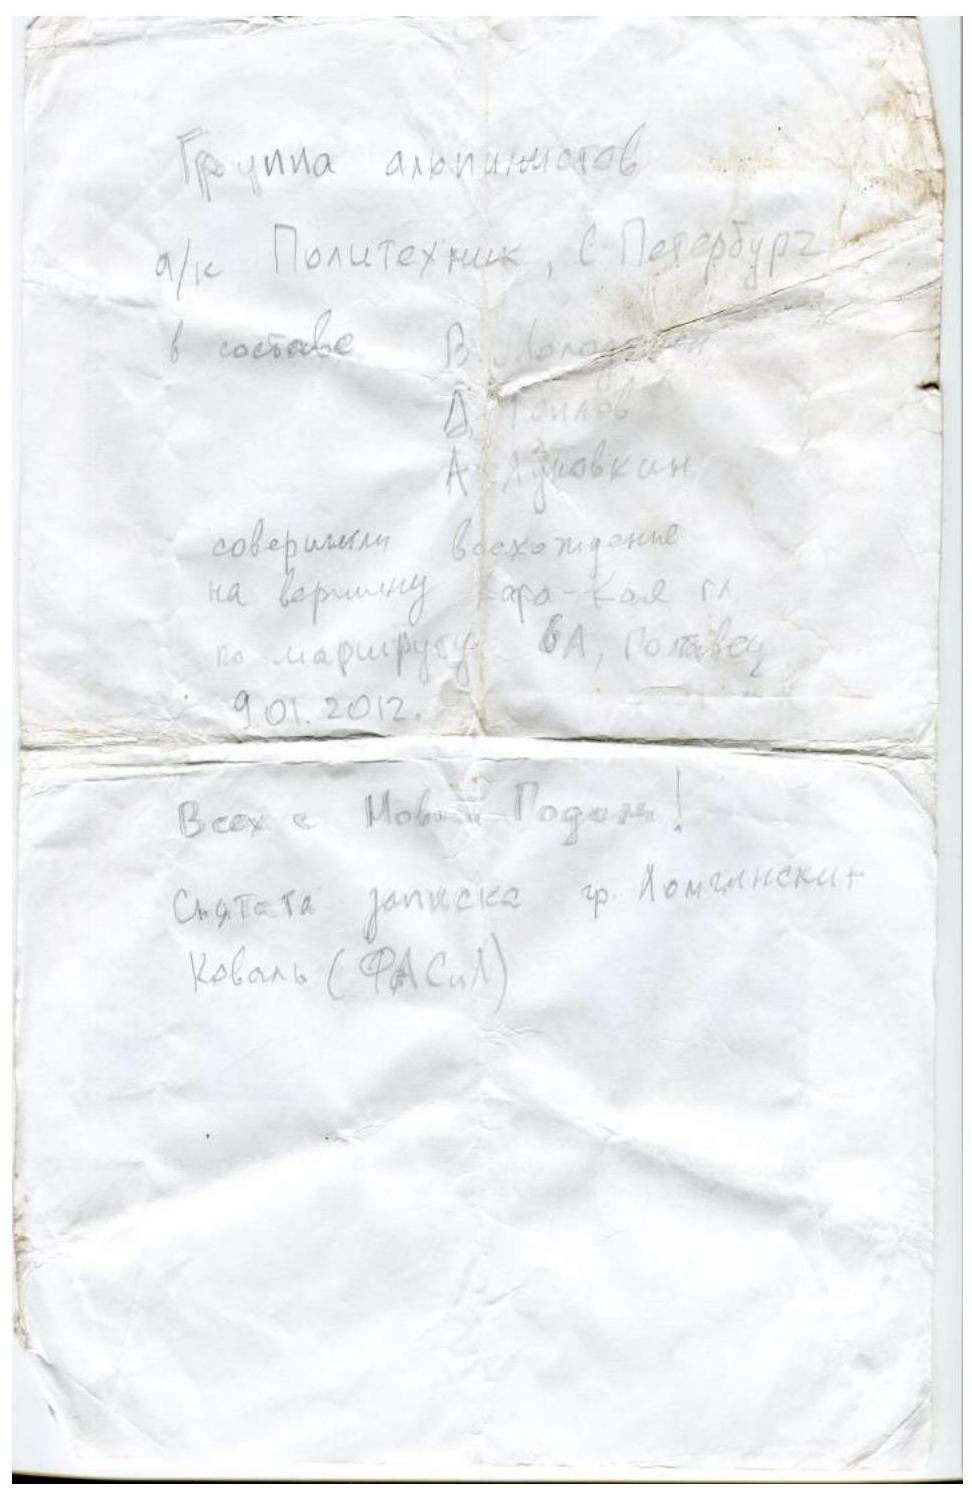 Группа альпинистов
а/к Политехник, С-Петербург
в составе В.
Д. Теплов
А. Луковкин
совершили восхождение
на вершину Кара-Кая гл.
по маршруту 6А, Голавец
9 01. 2012.
Всех с Новым Годом!
Снята записка гр.
Коваль (ФАСиЛ)